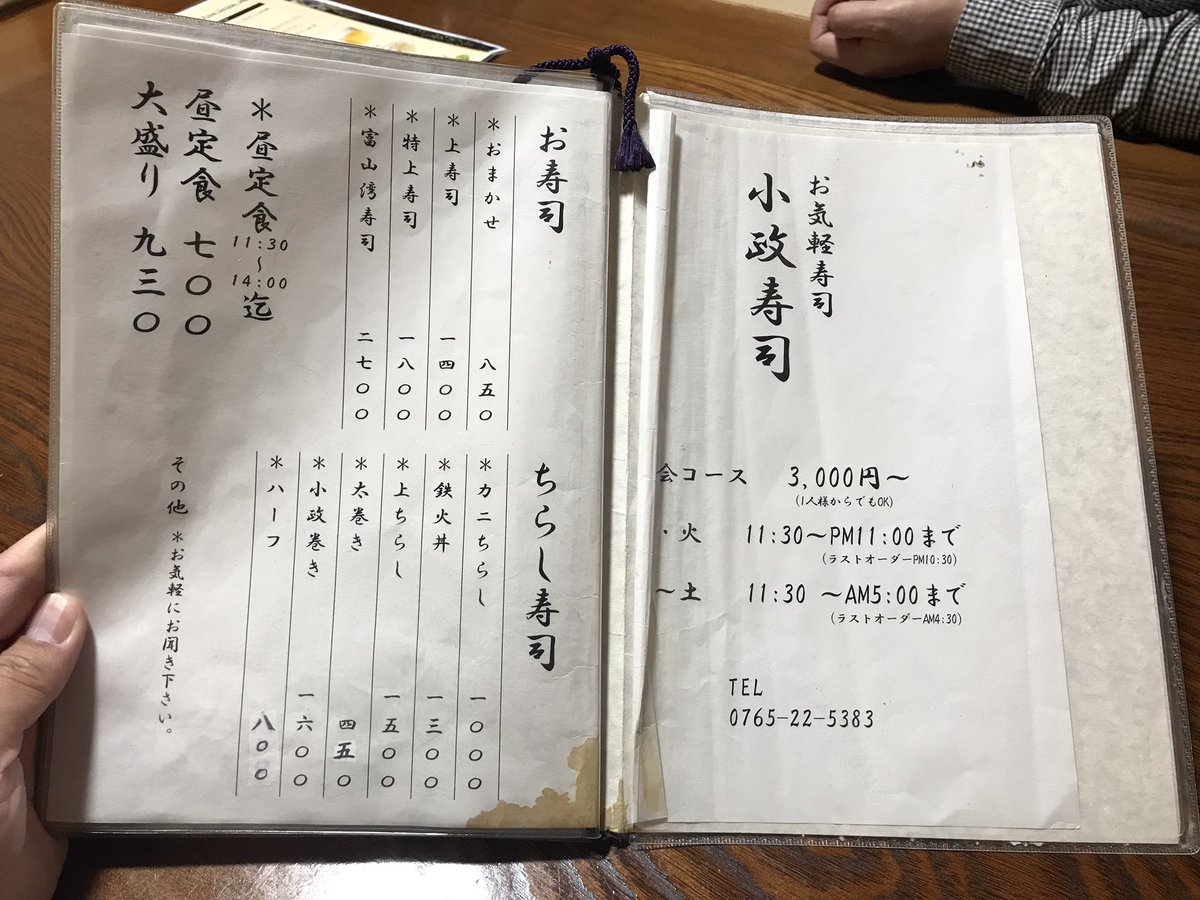 お気軽寿司
小政寿司
会コース 3,000円～
(1人様からでもOK)
・火 11:30～PM11:00まで
(ラストオーダーPM10:30)
～土 11:30 ～AM5:00まで
(ラストオーダーAM4:30)
TEL
0765-22-5383
お寿司
＊おまかせ 八五〇
＊上寿司 一四〇〇
＊特上寿司 一八〇〇
＊富山湾寿司 二七〇〇
＊昼定食 11:30～14:00迄
昼定食 七〇〇
大盛り 九三〇
ちらし寿司
＊カニちらし 一〇〇〇
＊鉄火丼 一三〇〇
＊上ちらし 一五〇〇
＊太巻き 四五〇
＊小政巻き 一六〇〇
＊ハーフ 八〇〇
その他 ＊お気軽にお聞き下さい。